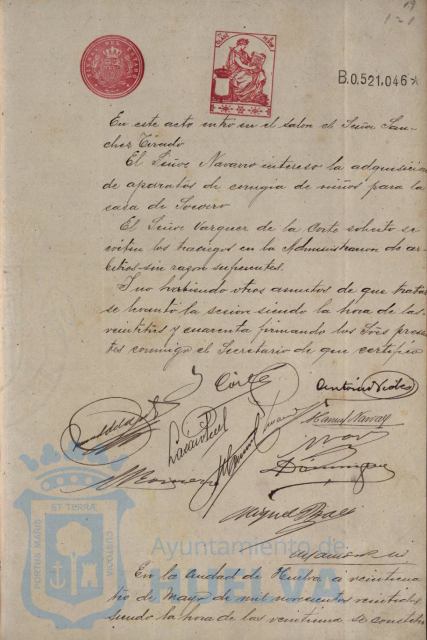 19
121
B.0.521.046
En este acto entro en el salon el Señor San-
chez Tirado
El Señor Navarro intereso la adquisicion
de aparatos de cirugia de niños para la
casa de Socorro
El Señor Vazquez de la Corte solicito se
eviten los trasiegos en la Administracion de ar-
bitrios sin razon suficientes.
Y no habiendo otros asuntos de que tratar
se levantó la sesion siendo la hora de las
veintitres y cuarenta firmando los Sres presen
tes conmigo el Secretario de que certifico
Antonio Vides
Manuel Navarro
Dominguez
Miguel
PORTUS MARIS ET TERRÆ CUSTODIA
Ayuntamiento de
HUELVA
En la Ciudad de Huelva a veintiuno
de Mayo de mil novecientos
siendo la hora de las veintiuna se constitu